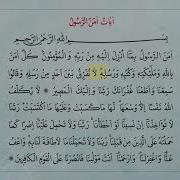 آيَاتُ آمَنَ الرَّسُولُ
بِسْمِ اللّٰهِ الرَّحْمٰنِ الرَّحِيمِ
آمَنَ الرَّسُولُ بِمَا أُنْزِلَ إِلَيْهِ مِنْ رَبِّهِ وَالْمُؤْمِنُونَ كُلٌّ آمَنَ
بِاللّٰهِ وَمَلٰئِكَتِهِ وَكُتُبِهِ وَرُسُلِهِ لَا نُفَرِّقُ بَيْنَ أَحَدٍ مِنْ رُسُلِهِ وَقَالُوا
سَمِعْنَا وَأَطَعْنَا غُفْرَانَكَ رَبَّنَا وَإِلَيْكَ الْمَصِيرُ لَا يُكَلِّفُ
اللّٰهُ نَفْسًا إِلَّا وُسْعَهَا لَهَا مَا كَسَبَتْ وَعَلَيْهَا مَا اكْتَسَبَتْ رَبَّنَا
لَا تُؤَاخِذْنَا إِنْ نَسِينَا أَوْ أَخْطَأْنَا رَبَّنَا وَلَا تَحْمِلْ عَلَيْنَا إِصْرًا
كَمَا حَمَلْتَهُ عَلَى الَّذِينَ مِنْ قَبْلِنَا رَبَّنَا وَلَا تُحَمِّلْنَا مَا لَا طَاقَةَ لَنَا بِهِ وَاعْفُ
عَنَّا وَاغْفِرْ لَنَا وَارْحَمْنَا أَنْتَ مَوْلٰينَا فَانْصُرْنَا عَلَى الْقَوْمِ الْكَافِرِينَ